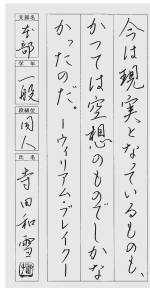 今は現実となっているものも、
かつては空想のものでしかな
かったのだ。ーウィリアム・ブレイクー
支部名
本部
学年
一般
段級位
同人
氏名
寺田和雪